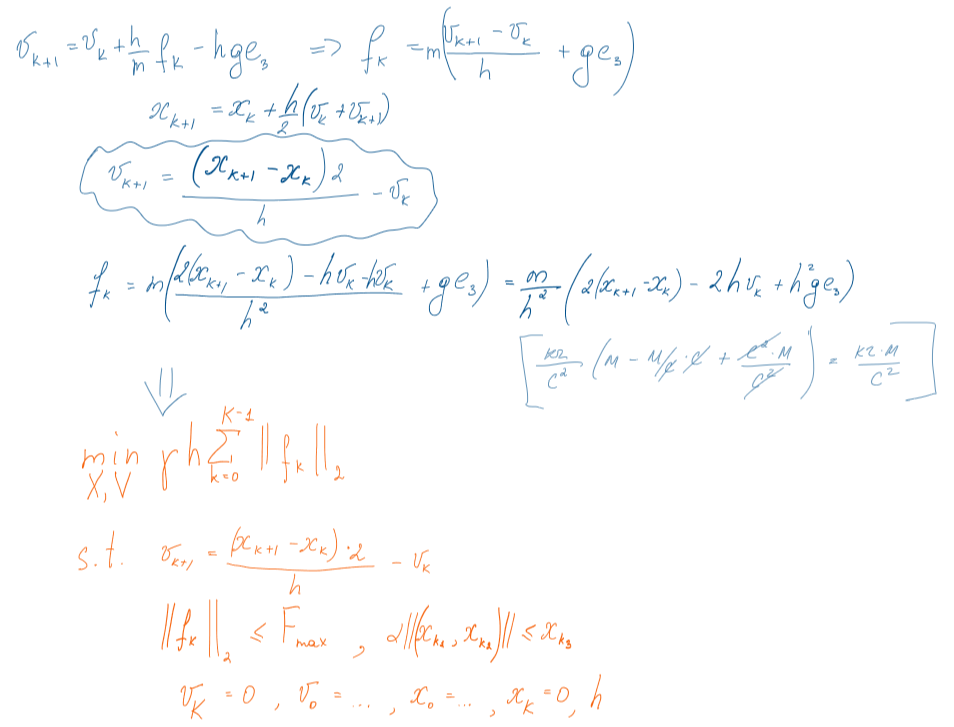 v_{k+1} = v_k + \frac{h}{m} f_k - hge_3 => f_k = m(\frac{v_{k+1} - v_k}{h} + ge_3)
x_{k+1} = x_k + \frac{h}{2}(v_k + v_{k+1})
v_{k+1} = \frac{(x_{k+1} - x_k) 2}{h} - v_k
f_k = m(\frac{2(x_{k+1} - x_k) - hv_k - hv_k}{h^2} + ge_3) = \frac{m}{h^2}(2(x_{k+1} - x_k) - 2hv_k + h^2 ge_3)
[\frac{кг}{с^2}(м - м/с·с + \frac{с^2·м}{с^2}) = \frac{кг·м}{с^2}]
⇓
min_{X,V} γh \sum_{k=0}^{K-1} ||f_k||_2
s.t. v_{k+1} = \frac{(x_{k+1} - x_k)·2}{h} - v_k
||f_k||_2 ≤ F_{max}, α||(x_{k1}, x_{k2})|| ≤ x_{k3}
v_K = 0, v_0 = ..., x_0 = ..., x_K = 0, h